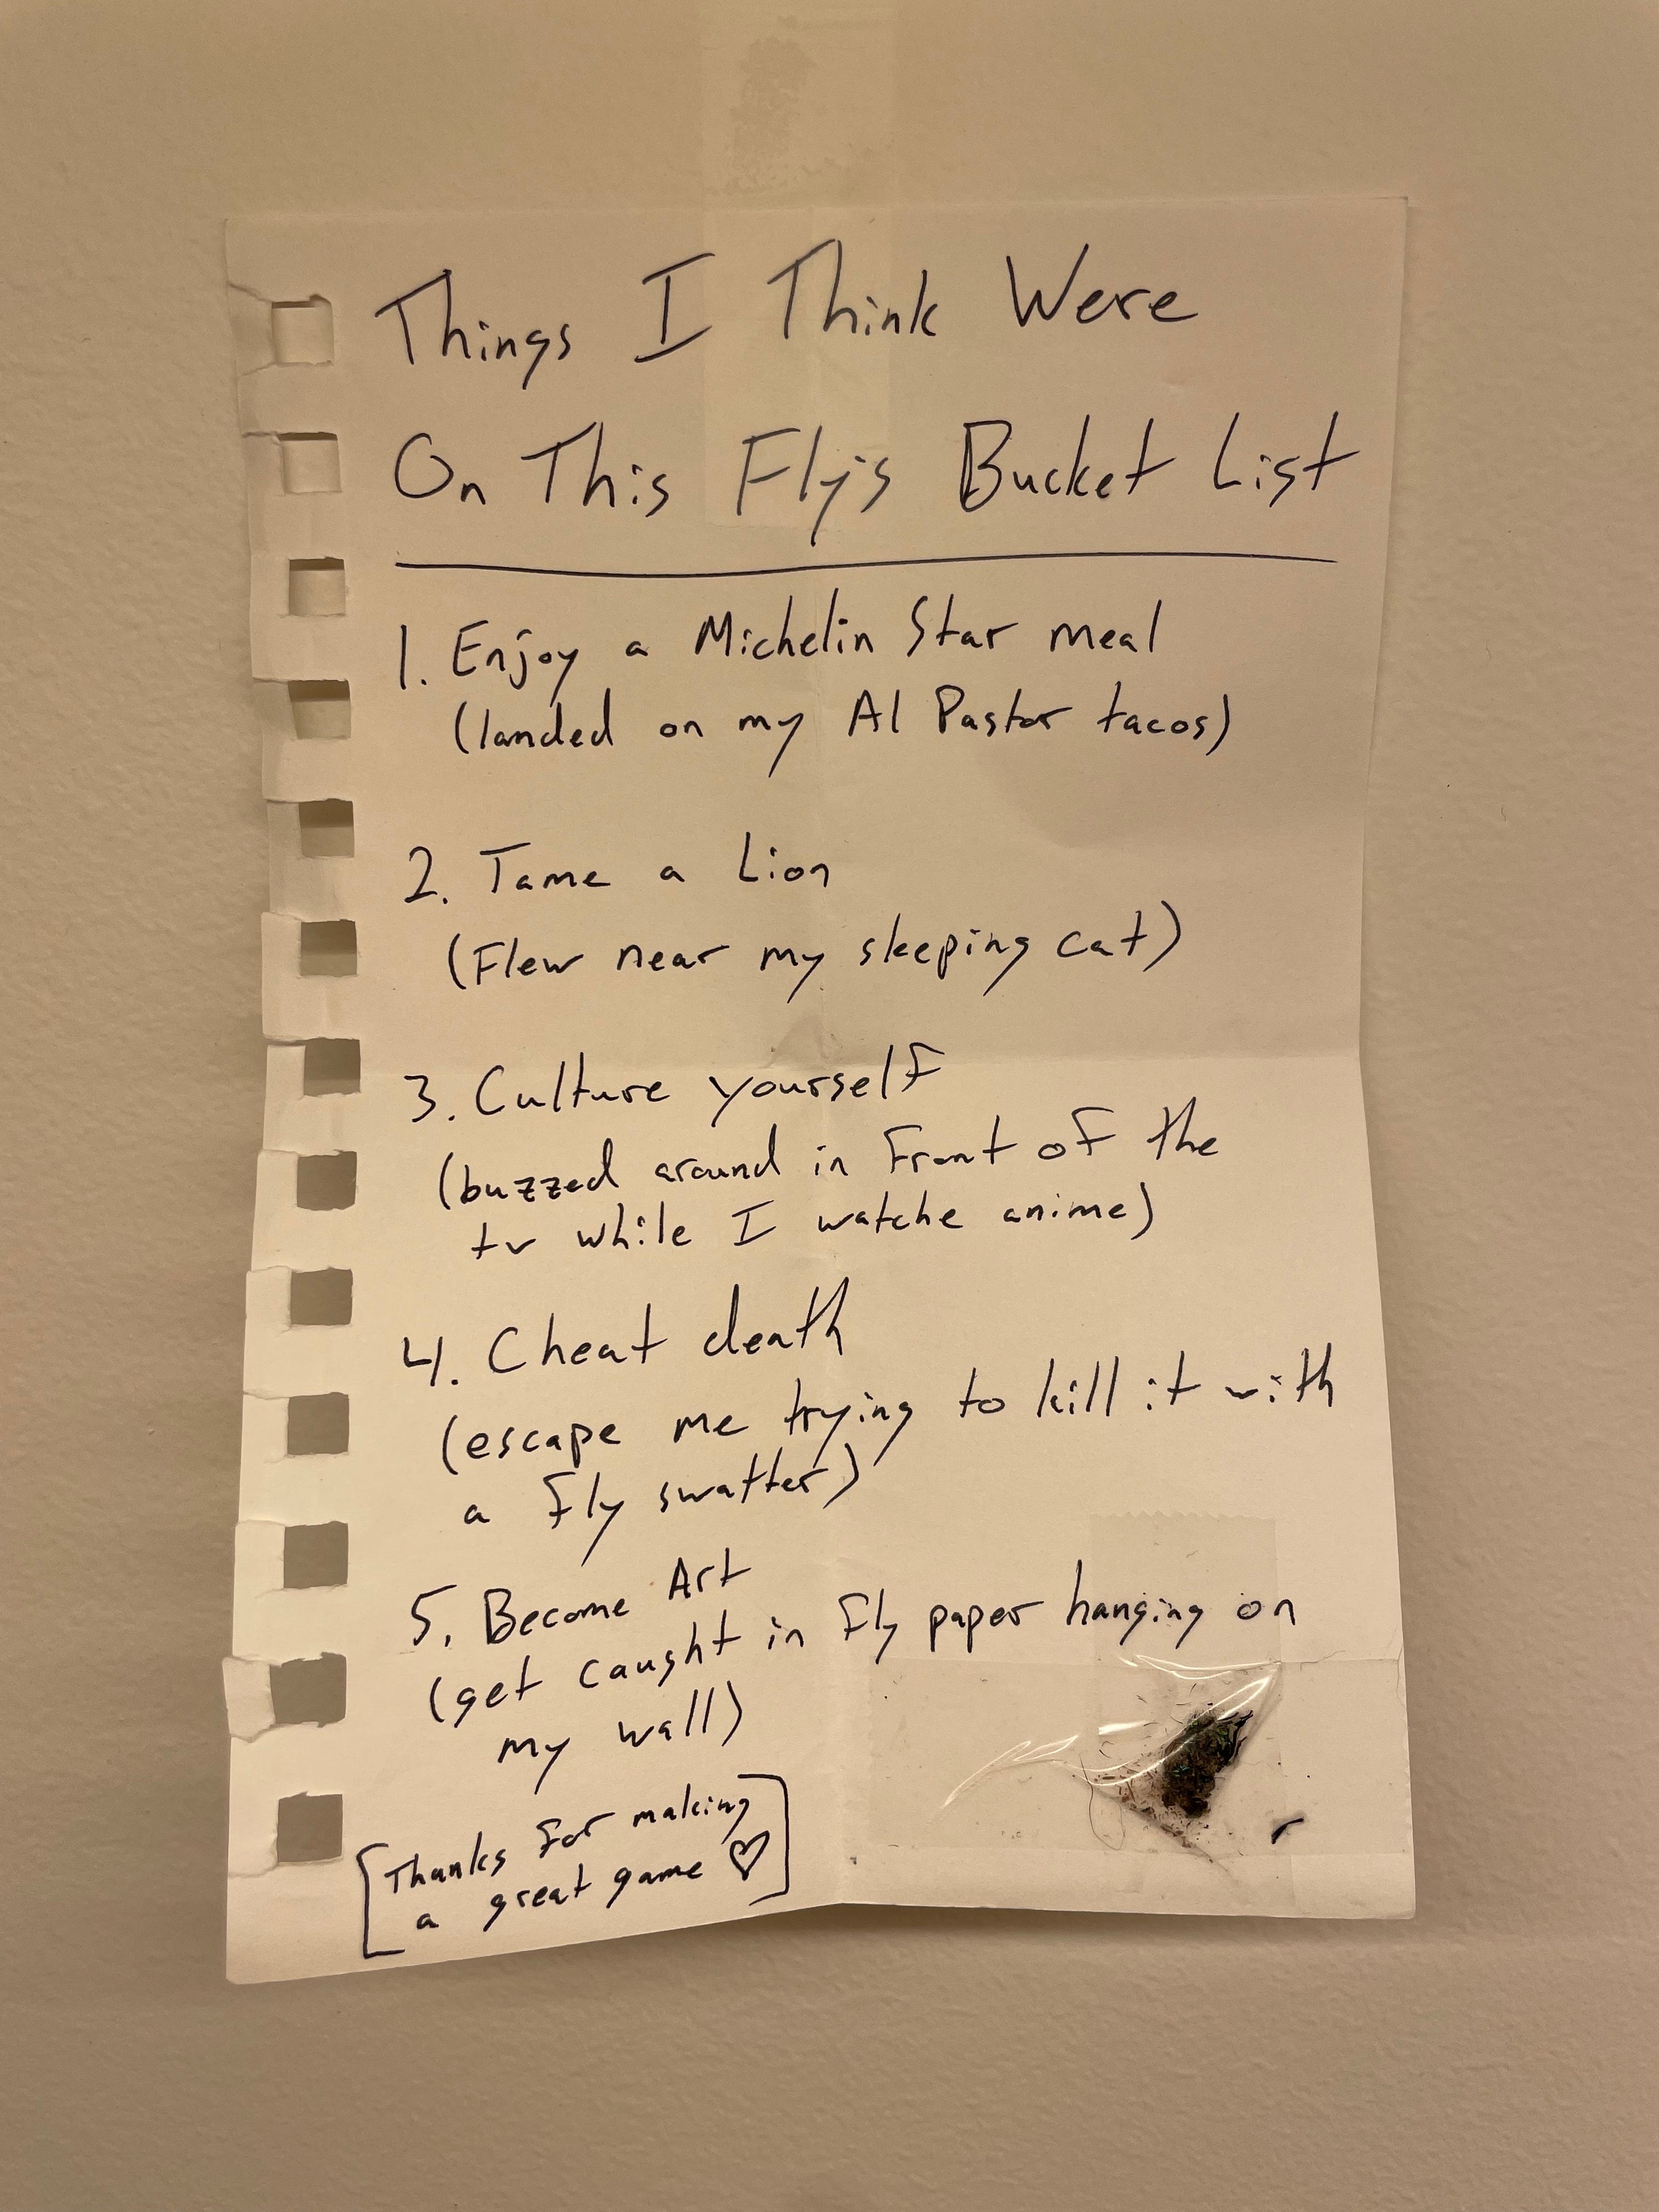 Things I Think Were
On This Fly's Bucket List
1. Enjoy a Michelin Star meal
(landed on my Al Pastor tacos)
2. Tame a Lion
(Flew near my sleeping cat)
3. Culture yourself
(buzzed around in front of the
tv while I watche anime)
4. Cheat death
(escape me trying to kill it with
a fly swatter)
5. Become Art
(get caught in fly paper hanging on
my wall)
[Thanks for making
a great game ♡]